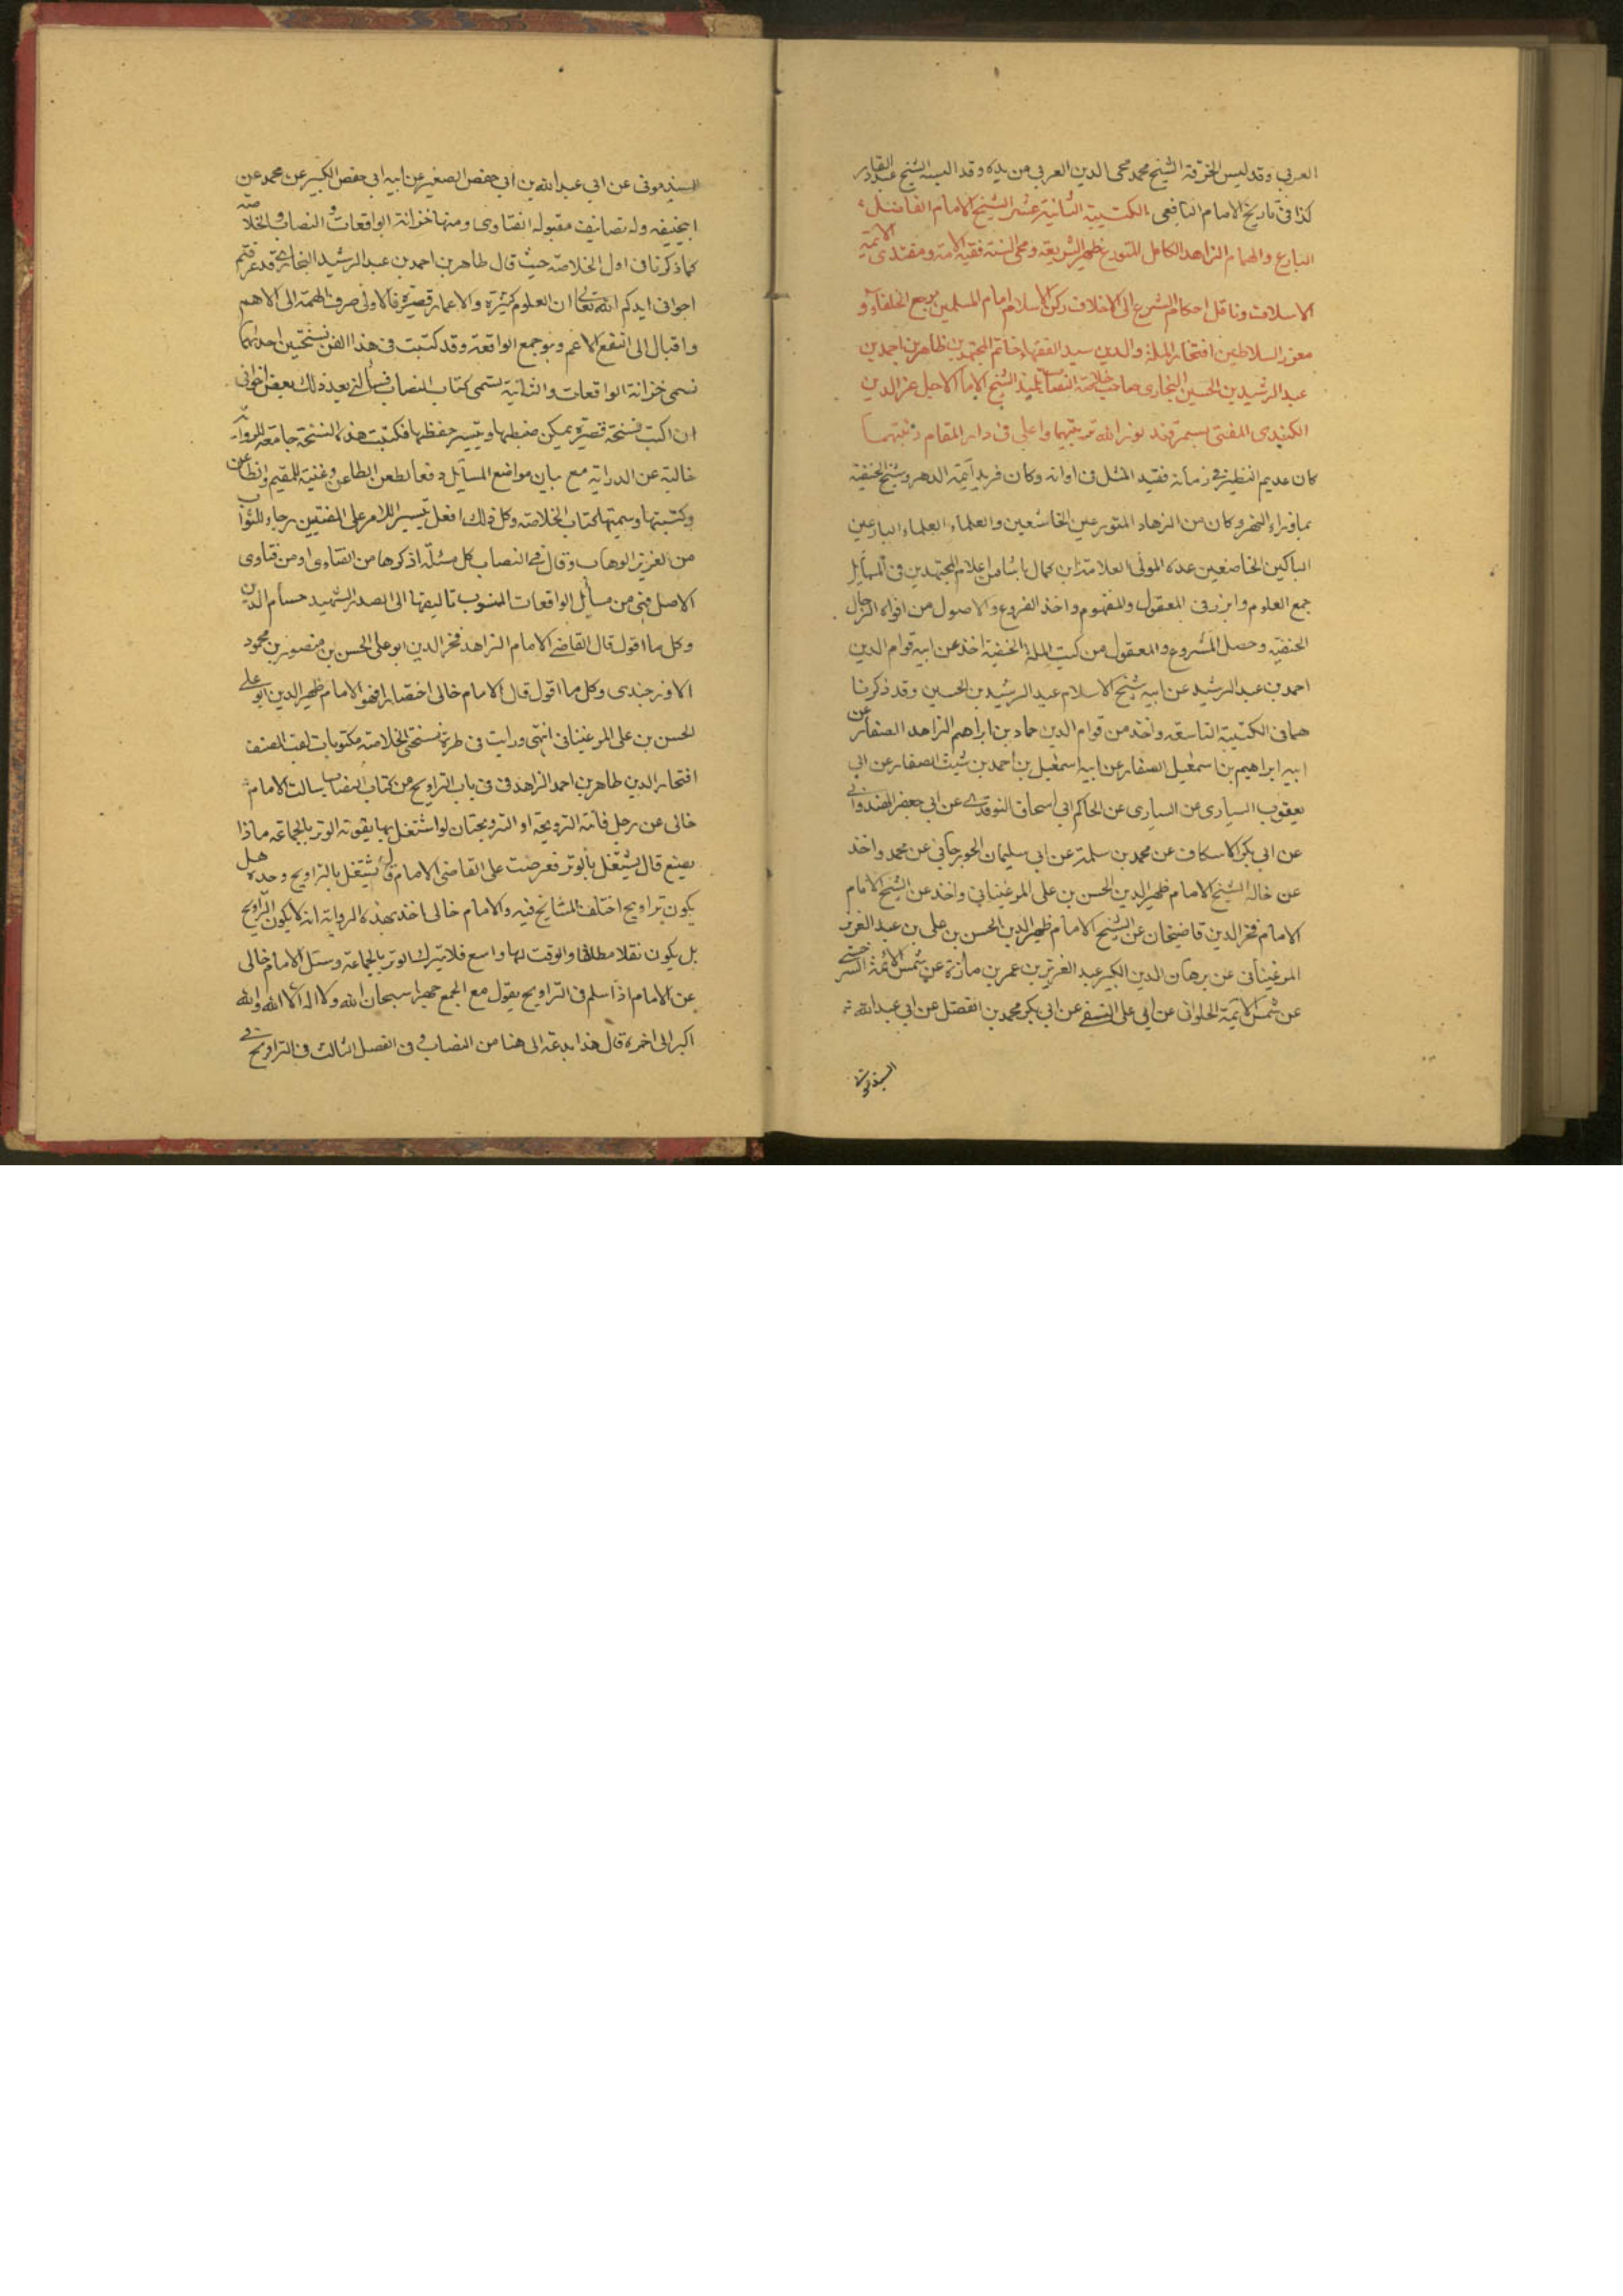 العربى وقد لبس الخرقة الشيخ محمد محى الدين العربى من يده وقد البسه الشيخ عبد القادر
كذا فى تاريخ الامام اليافعى الكتيبة الثانية عشر الشيخ الامام الفاضل
البارع والهمام الزاهد الكامل المتورع ظهير الشريعة ومحى السنة فقيه الامة ومقتدى الائمة
الاسلاف وناقل احكام الشرع الى الاخلاف ركن الاسلام امام المسلمين مرجع الخلفاء و
معزز السلاطين افتخار الملة والدين سيد الفقهاء خاتم المجتهدين طاهر بن احمد بن
عبد الرشيد بن الحسين البخارى صاحب خلاصة النصاب تلميذ الشيخ الامام الاجل عز الدين
الكندى المفتى بسمرقند نور الله تربتهما واعلى فى دار المقام رتبتهما
كان عديم النظير فى زمانه فقيد المثل فى اوانه وكان فريد ائمة الدهر وشيخ الحنفية
بماوراء النهر وكان من الزهاد المتورعين الخاشعين والعلماء العلماء البارعين
الباكين الخاضعين عده المولى العلامة ابن كمال باشا من اعلام المجتهدين فى المسائل
جمع العلوم وابرز فى المعقول والمفهوم واخذ الفروع والاصول من افواه الرجال
الحنفية وحصل المشروع والمعقول من كتب الملة الحنفية اخذ عن ابيه قوام الدين
احمد بن عبد الرشيد عن ابيه شيخ الاسلام عبد الرشيد بن الحسين وقد ذكرنا
هما فى الكتيبة التاسعة واخذ من قوام الدين حماد بن ابراهيم الزاهد الصفار عن
ابيه ابراهيم بن اسمعيل الصفار عن ابيه اسمعيل بن احمد بن شيث الصفار عن ابى
يعقوب السيارى من السيارى عن الحاكم ابى اسحاق النوقدى عن ابى جعفر الهندوانى
عن ابى بكر الاسكاف عن محمد بن سلمة عن ابى سليمان الجوزجانى عن محمد واخذ
عن خاله الشيخ الامام ظهير الدين الحسن بن على المرغينانى واخذ عن الشيخ الامام
الامام فخر الدين قاضيخان عن الشيخ الامام ظهير الدين الحسن بن على بن عبد العزيز
المرغينانى عن برهان الدين الكبير عبد العزيز بن عمر بن مازة عن شمس الائمة السرخسى
عن شمس الائمة الحلوانى عن ابى على النسفى عن ابى بكر محمد بن الفضل عن ابى عبد الله
السبذمونى
السبذمونى عن ابى عبد الله بن ابى حفص الصغير عن ابيه ابى حفص الكبير عن محمد عن
ابيحنيفه وله تصانيف مقبوله الفتاوى ومنها خزانة الواقعات والنصاب والخلاصة
كما ذكرنا فى اول الخلاصة حيث قال طاهر بن احمد بن عبد الرشيد البخارى قد عرفتم
اخوانى ايدكم الله تعالى ان العلوم كثيرة والاعمار قصيرة فالاولى صرف الهمة الى الاهم
واقبال الى النفع الاعم وهو جمع الواقعة وقد كتبت فى هذا الفن نسختين احديهما
تسمى خزانة الواقعات والثانية تسمى كتاب النصاب فسألنى بعد ذلك بعض اخوانى
ان اكتب نسخة قصيرة يمكن ضبطها ويتيسر حفظها فكتبت هذه النسخة جامعة للروايات
خالية عن الدراية مع بيان مواضع المسايل دفعا لطعن الطاعن وغنية للمقيم والظاعن
وكتبتها وسميتها كتاب الخلاصة وكل ذلك افعل تيسيرا للامر على المفتيين رجاء للثواب
من العزيز الوهاب وقال فى النصاب كل مسئلة اذكرها من الفتاوى او من فتاوى
الاصل فهى من مسايل الواقعات المنسوب تاليفها الى الصدر الشهيد حسام الدين
وكل ما اقول قال القاضى الامام الزاهد فخر الدين ابو على الحسن بن منصور بن محمود
الاوزجندى وكل ما اقول قال الامام خالى اختصارا فهو الامام ظهير الدين ابو على
الحسن بن على المرغينانى انتهى ورايت فى طرة نسختى الخلاصة مكتوبات لقب المصنف
افتخار الدين طاهر بن احمد الزاهد فى باب التراويح من كتاب النصاب سالت الامام
خالى عن رجل فاتته الترويحة او الترويحتان لو اشتغل بها يفوته الوتر بالجماعة ماذا
يصنع قال يشتغل بالوتر فعرضت على القاضى الامام قال يشتغل بالتراويح وحده هل
يكون تراويح اختلف المشايخ فيه والامام خالى اخذ بهذه الرواية انه لا يكون التراويح
بل يكون نفلا مطلقا والوقت لها واسع فلا يترك الوتر بالجماعة وسئل الامام خالى
عن الامام اذا سلم فى التراويح يقول مع الجمع جهرا سبحان الله ولا اله الا الله والله
اكبر الى اخره قال هذا بدعة الى هنا من النصاب وفى الفصل الثالث فى التراويح فى